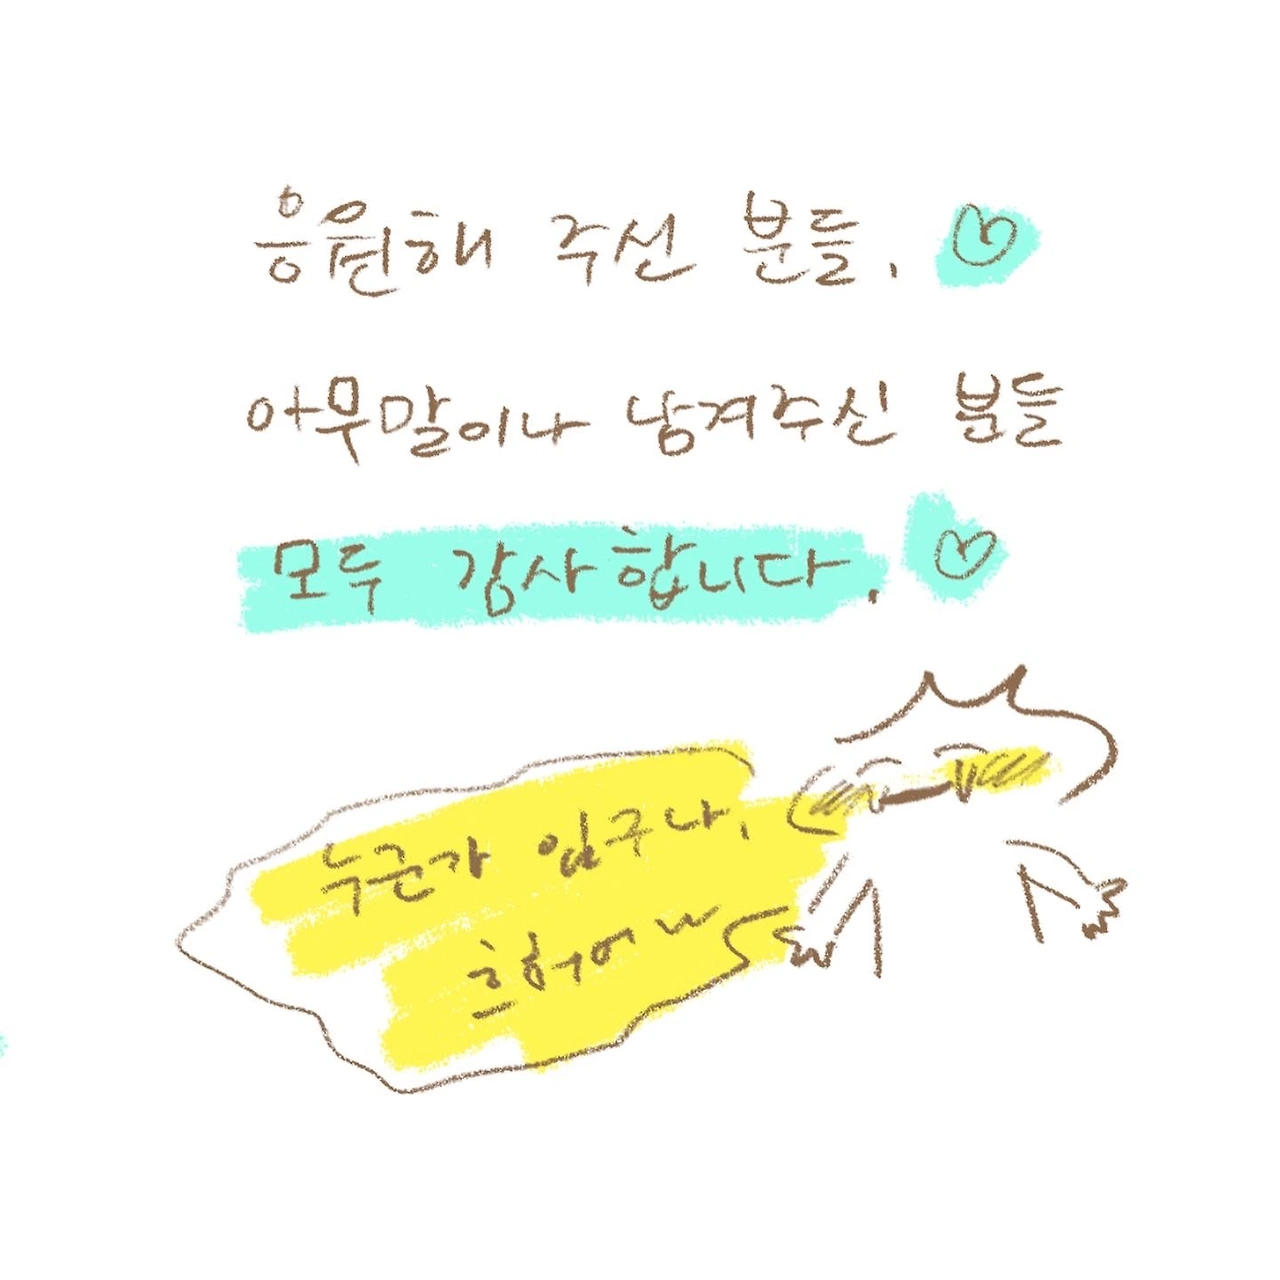 응원해 주신 분들, ♡
아무말이나 남겨주신 분들
모두 감사합니다. ♡
누군가 있구나,
흐허어